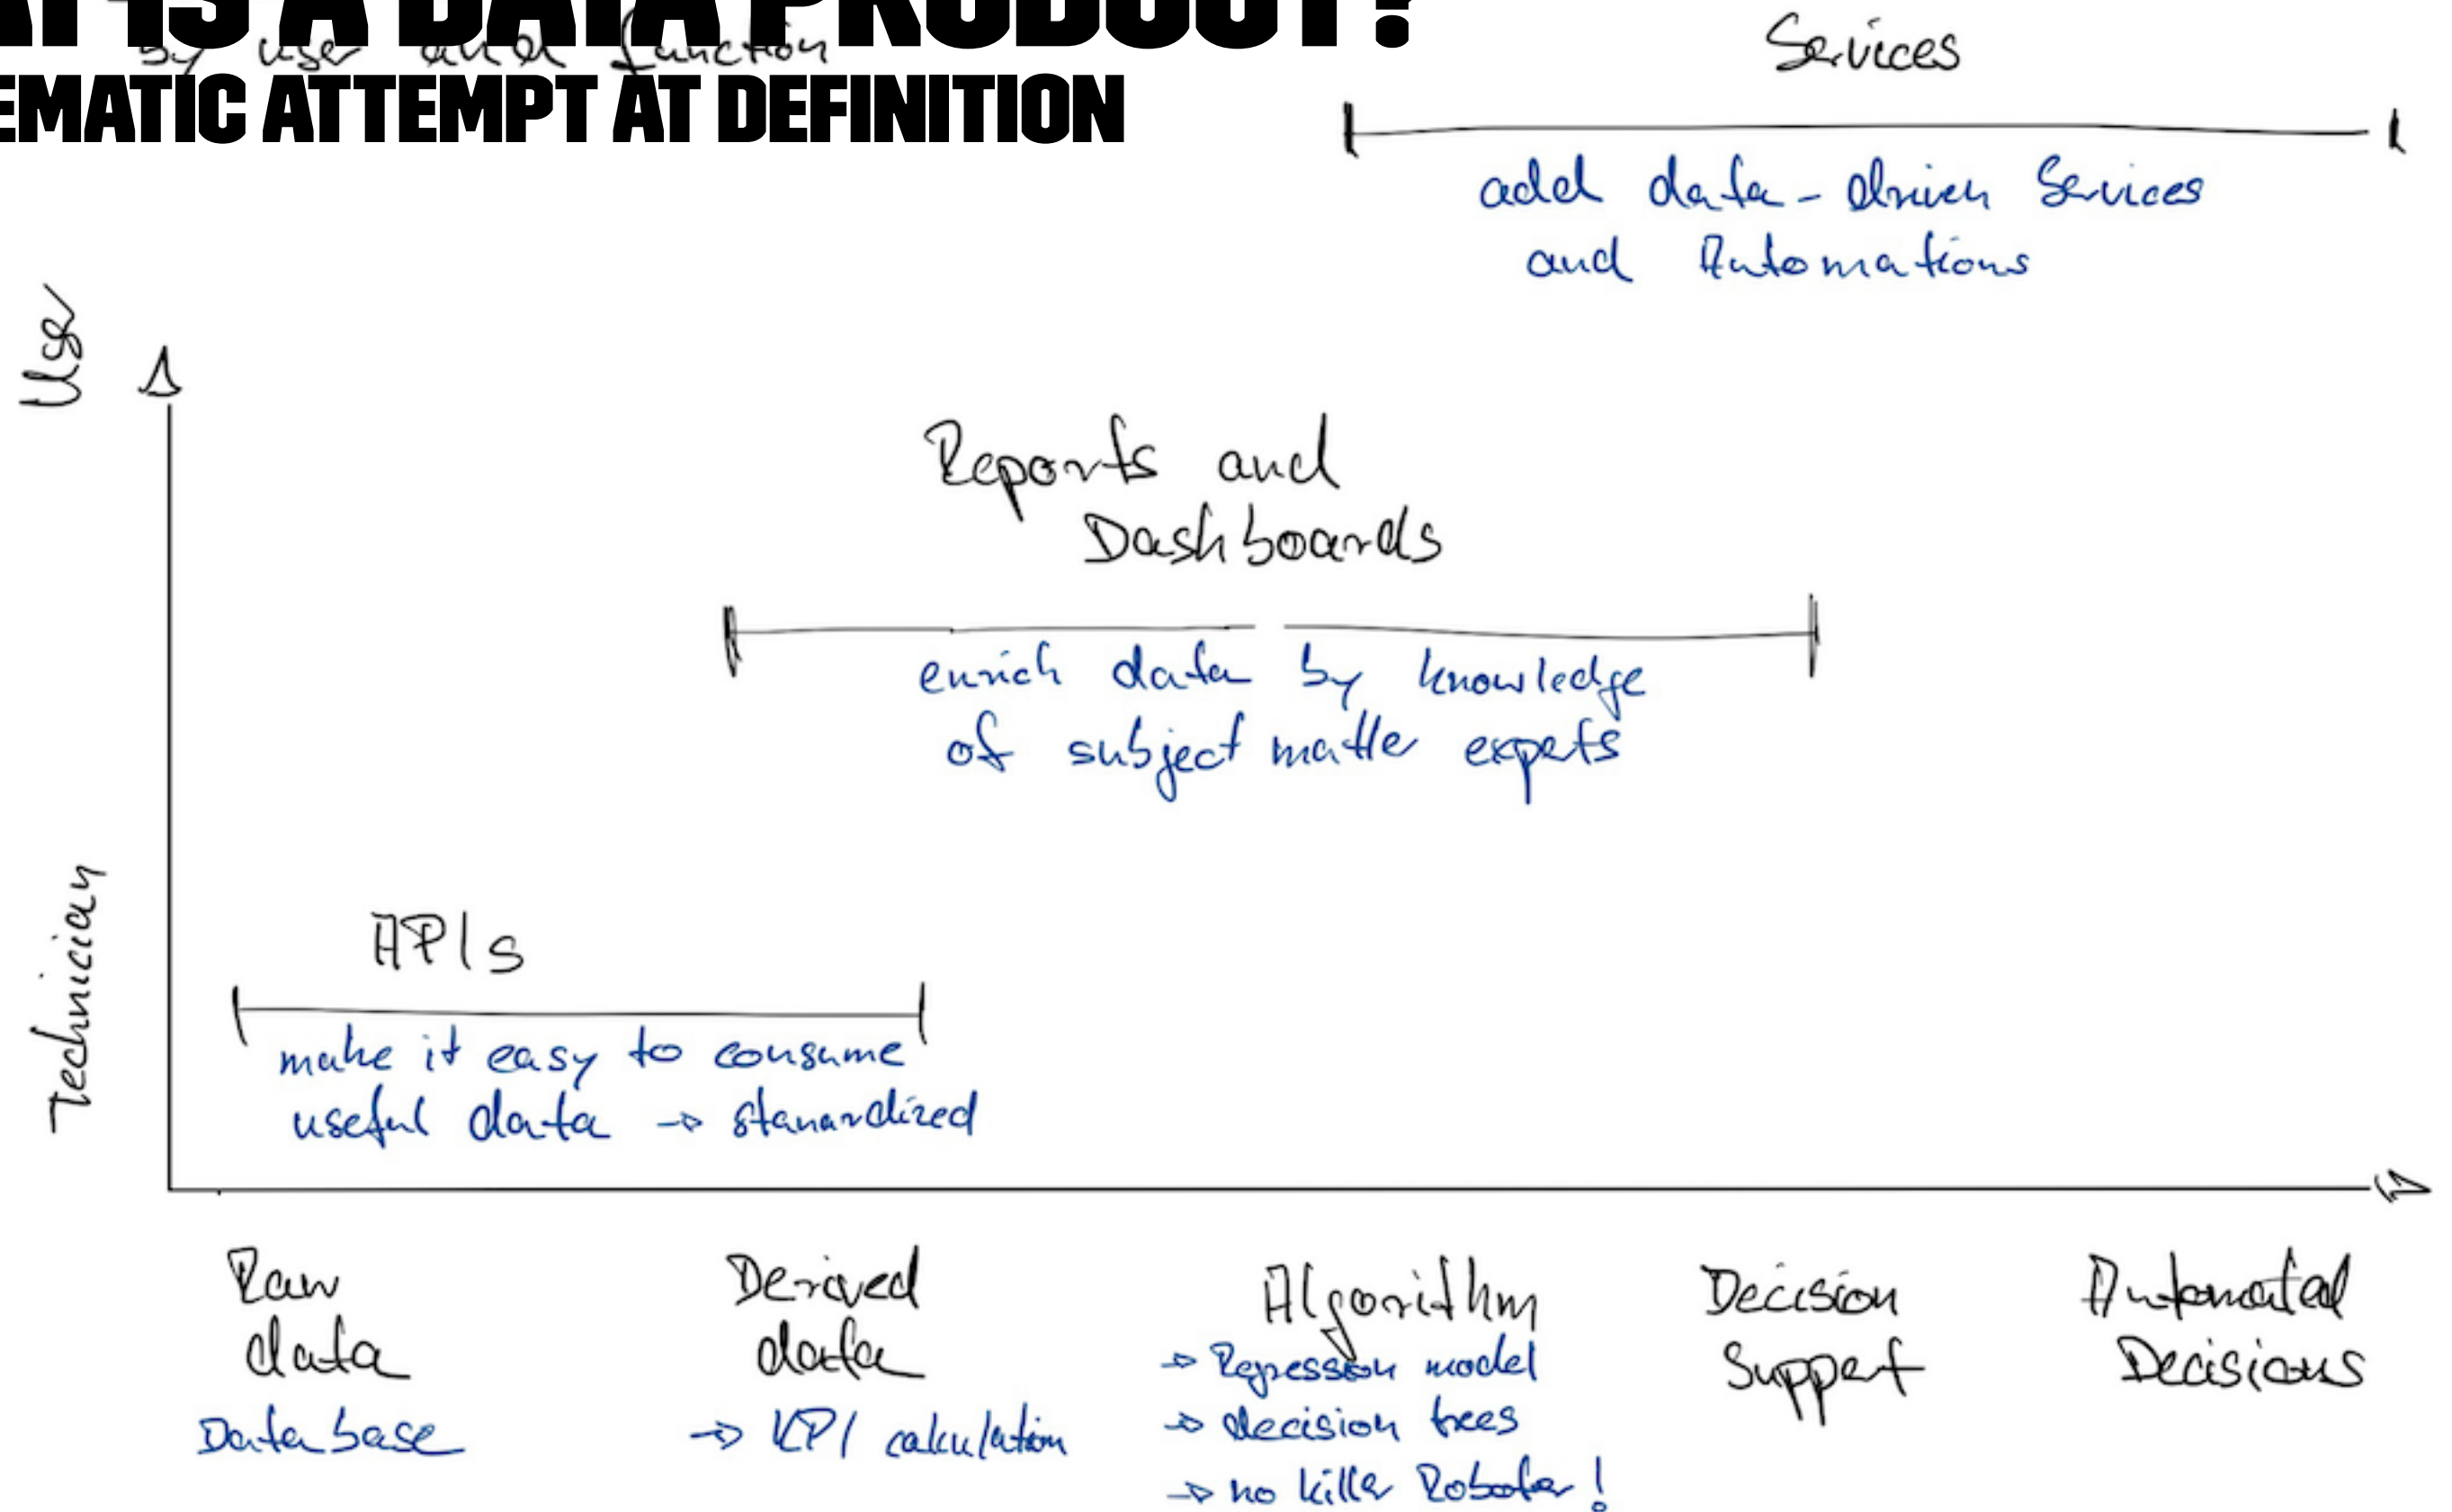 IS A DATA PRODUCT?
by user and function
EMATIC ATTEMPT AT DEFINITION
Services
add data-driven Services
and Automations
User
Reports and
Dashboards
enrich data by knowledge
of subject matter experts
Technician
APIs
make it easy to consume
useful data → stanardized
Raw
data
Database
Derived
data
→ KPI calculation
Algorithm
→ Regression model
→ decision trees
→ no killer Roboter!
Decision
Support
Automated
Decisions